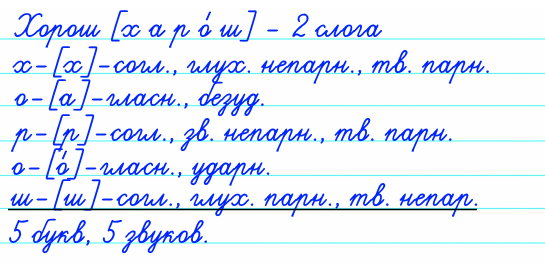 Хорош [х а р о́ ш] – 2 слога
х–[х]–согл., глух. непарн., тв. парн.
о–[а]–гласн., безуд.
р–[р]–согл., зв. непарн., тв. парн.
о–[о́]–гласн., ударн.
ш–[ш]–согл., глух. парн., тв. непар.
5 букв, 5 звуков.